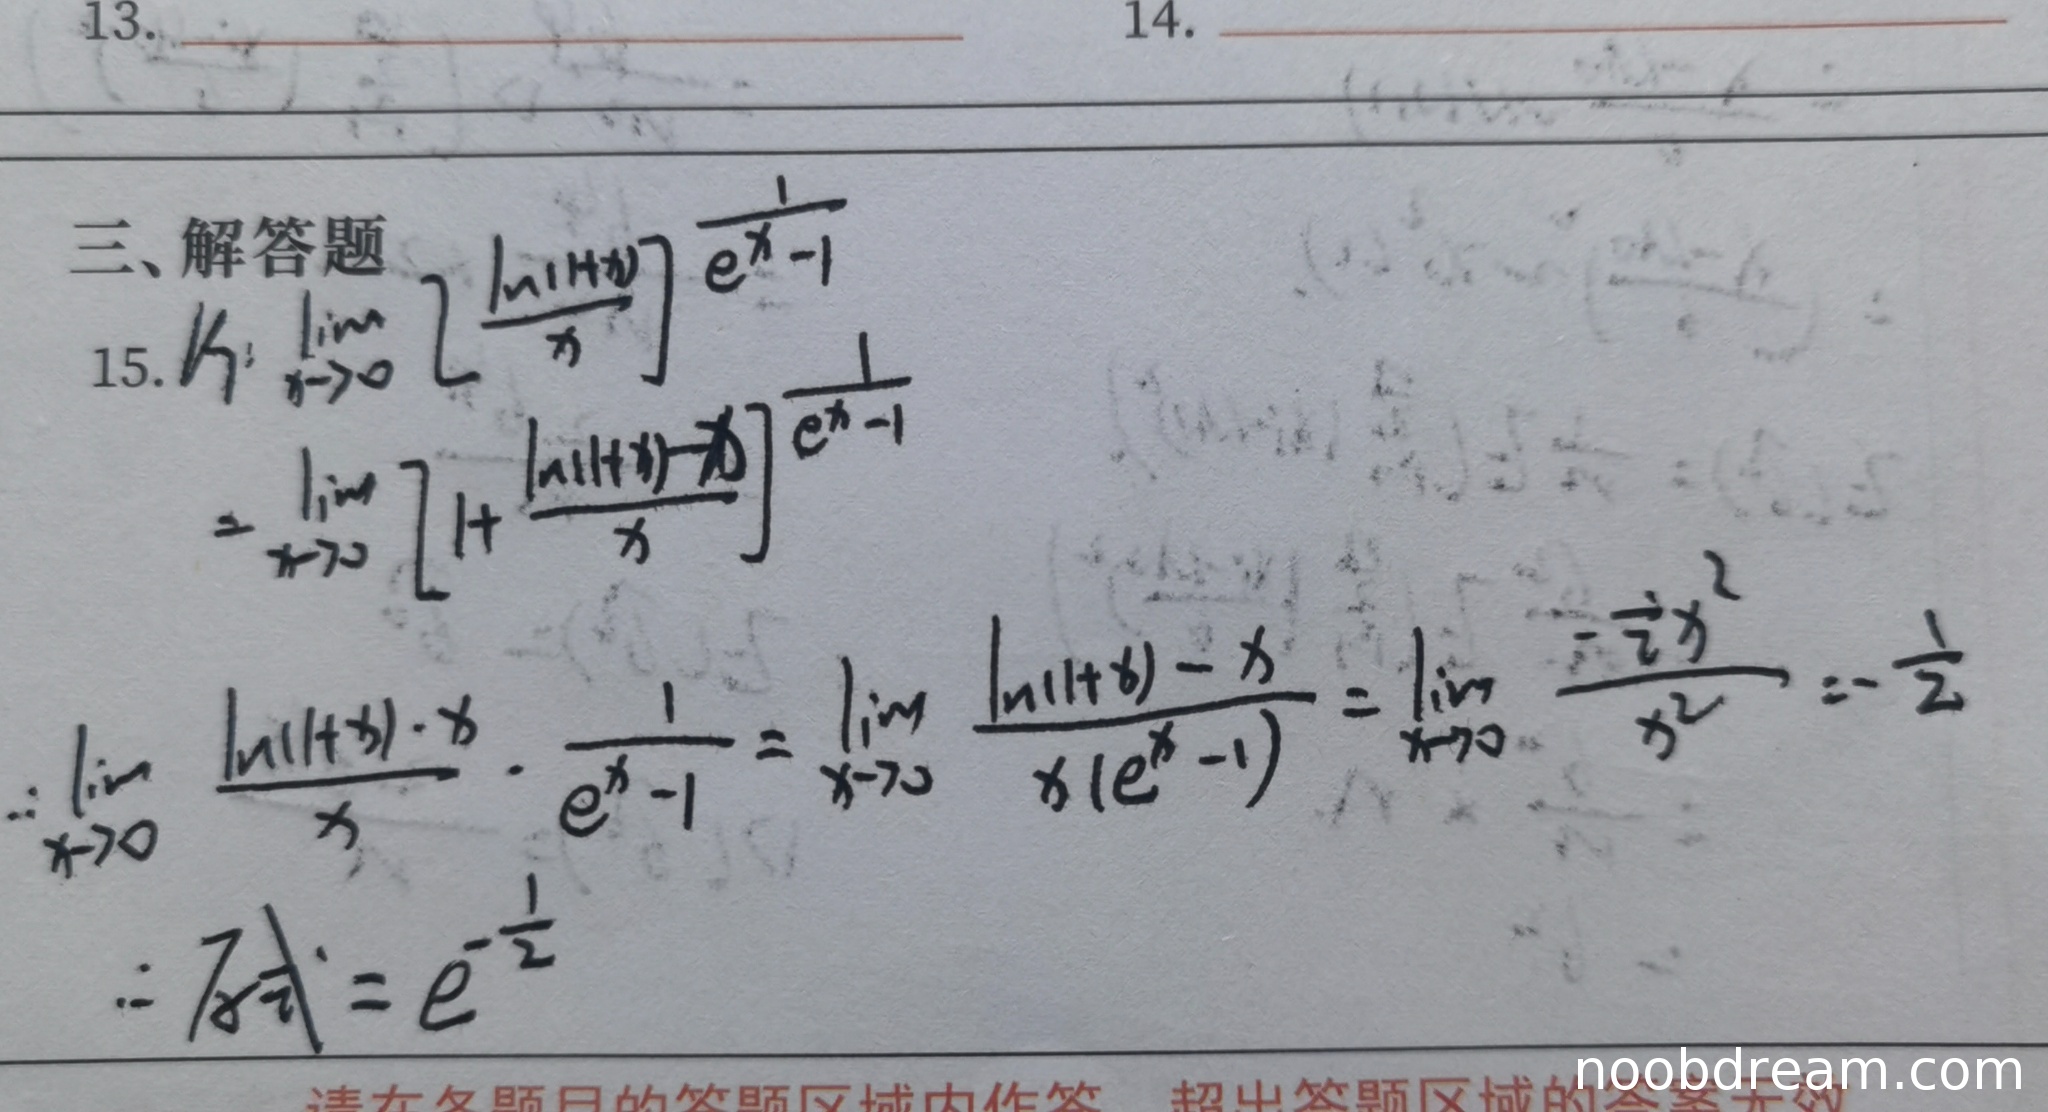 13. 14.
三、解答题
15. 解: lim x→0 [ln(1+x)/x]^(1/(e^x-1))
= lim x→0 [1+(ln(1+x)-x)/x]^(1/(e^x-1))
∴ lim x→0 (ln(1+x)-x)/x · 1/(e^x-1) = lim x→0 (ln(1+x)-x)/(x(e^x-1)) = lim x→0 (-1/2 x^2)/x^2 = -1/2
∴ 原式 = e^(-1/2)
请在各题目的答题区域内作答，超出答题区域的答案无效
noobdream.com